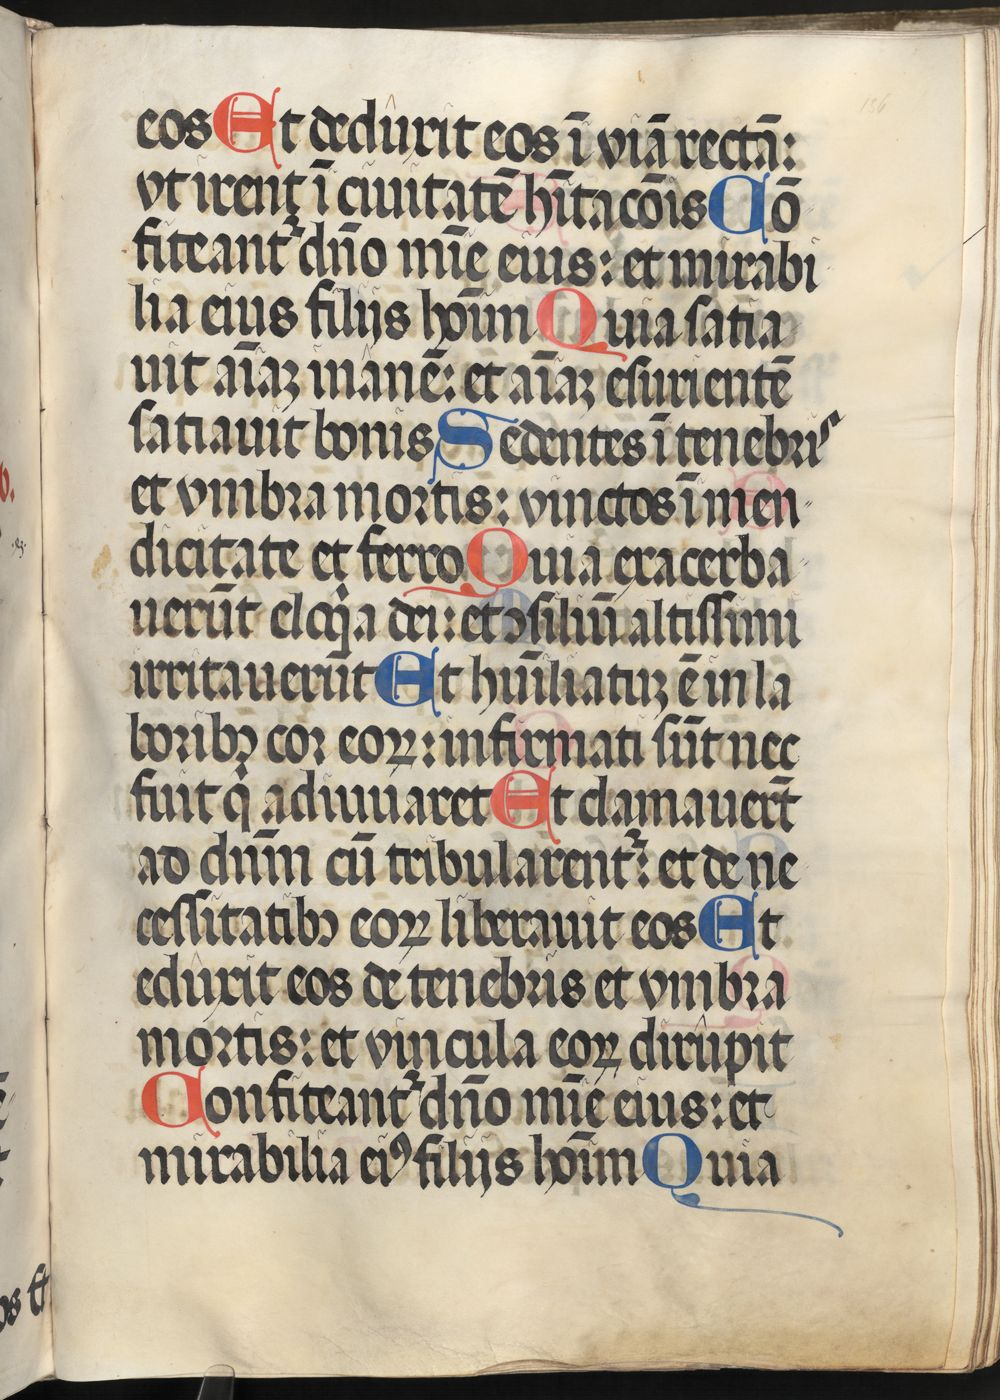 eos Et dedûxit eos ī viā rectā:
vt irent ī ciuitatē hītacōis Cō
fiteant᷑ dn̄o mīe eius: et mirabi
lia eius filijs hoīm Quia satia
uit aīaꝫ inânē: et aīaꝫ esurientē
satiauit bonis Sedentes ī tenebris
et vmbra mortis: vinctos ī men
dicitate et ferro Quia exacerba
uerūt eloq̄a dei: et ꝯsiliū altissimi
irritauerūt Et hūiliatuꝫ ē in la
boribꝫ cor eoꝝ: infirmati sūt nec
fuit qͥ adiuuaret Et clamauer̄t
ad dn̄m cū tribularent᷑: et de ne
cessitatibꝫ eoꝝ liberauit eos Et
edûxit eos de tenebris et vmbra
mortis: et vincula eoꝝ dirûpit
Confiteant᷑ dn̄o mīe eius: et
mirabilia eiꝰ filijs hoīm Quia
136
os Et